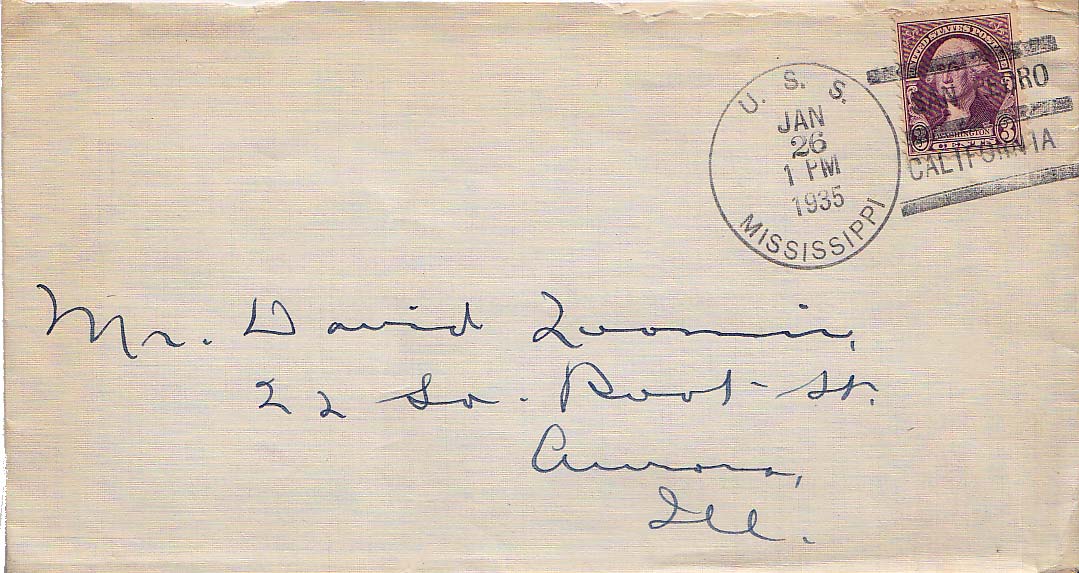 U. S. S.
JAN
26
1 PM
1935
MISSISSIPPI
UNITED STATES POSTAGE
WASHINGTON
3 3
SAN PEDRO
CALIFORNIA
Mr. David Loomis,
22 So. Root St.
Aurora,
Ill.